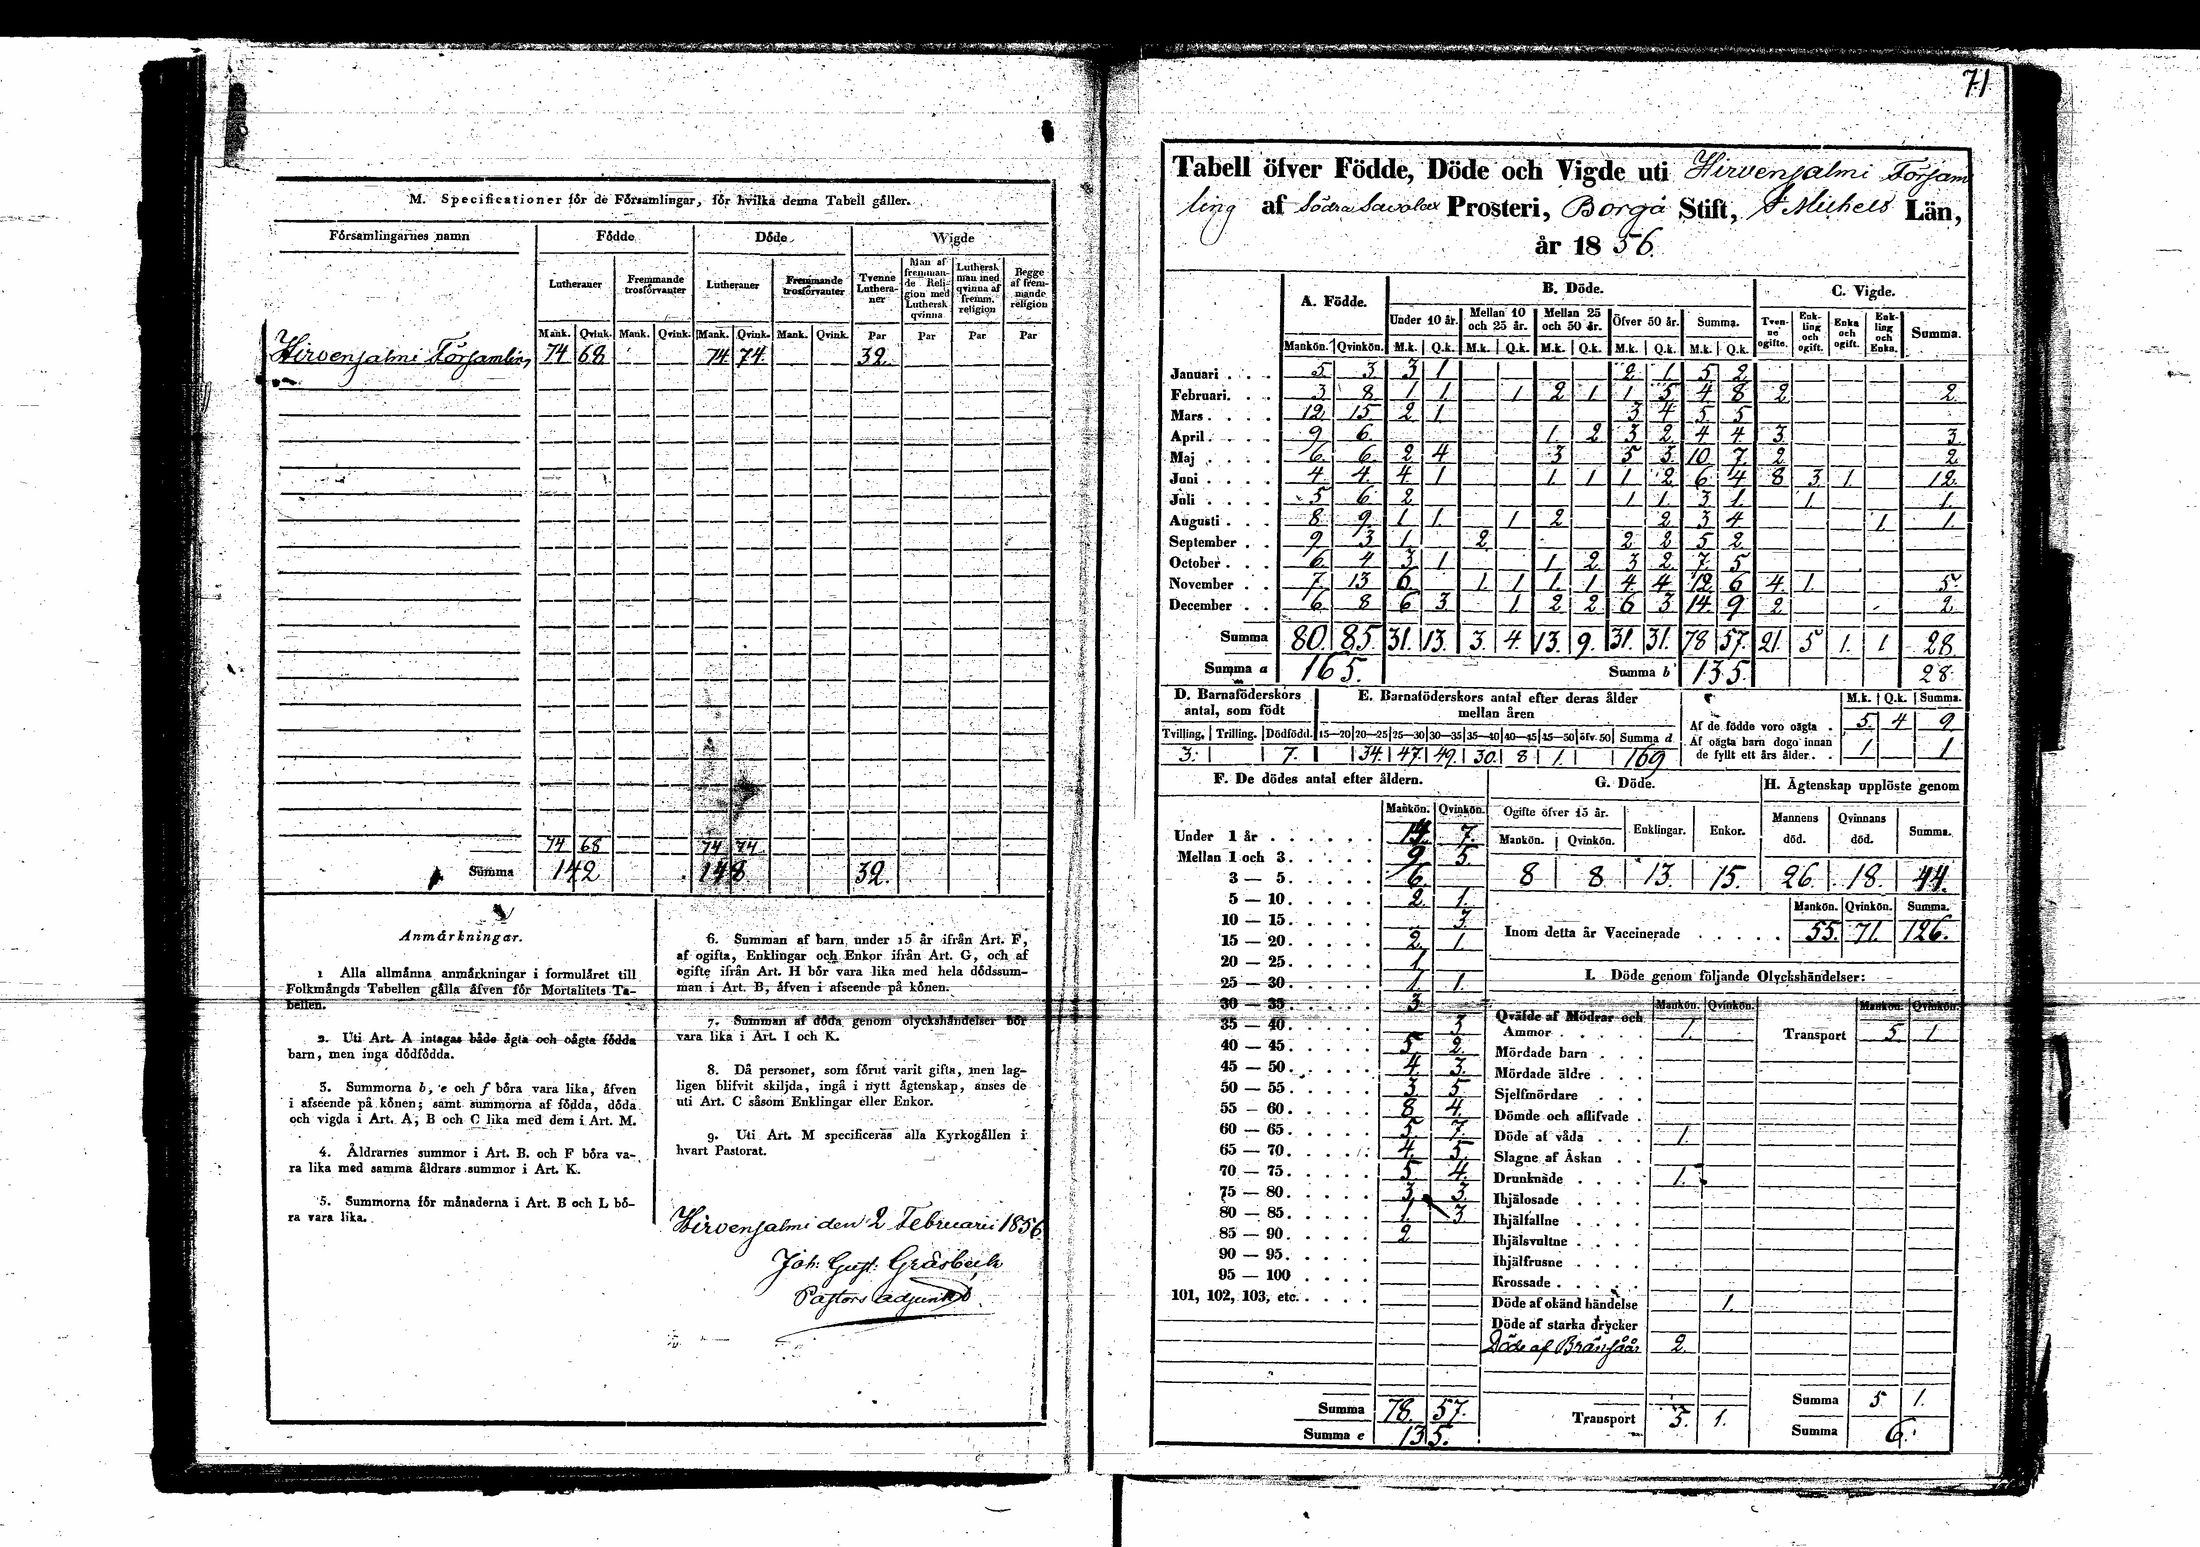 M. Specificationer för de Församlingar, för hvilka denna Tabell gäller.
Församlingarnes namn | Födde | Döde | Wigde
Lutheraner | Fremmande trosförvanter | Lutheraner | Fremmande trosförvanter | Tvenne Lutheraner | Man af fremmande Religion med Luthersk qvinna | Luthersk man med qvinna af fremm. religion | Begge af fremmande religion
Mank. | Qvink. | Mank. | Qvink. | Mank. | Qvink. | Mank. | Qvink. | Par | Par | Par | Par
Hirvensalmi Församling 74 68 74 74. 32.
74 68 74 74
Summa 142 148 32.
Anmärkningar.
1 Alla allmänna anmärkningar i formuläret till
Folkmängds Tabellen gälla äfven för Mortalitets Ta-
bellen.
2. Uti Art. A intagas både ägta och oägta födda
barn, men inga dödfödda.
3. Summorna b, e och f böra vara lika, äfven
i afseende på könen; samt summorna af födda, döda
och vigda i Art. A, B och C lika med dem i Art. M.
4. Åldrarnes summor i Art. B. och F böra va-
ra lika med samma åldrars summor i Art. K.
5. Summorna för månaderna i Art. B och L bö-
ra vara lika.
6. Summan af barn under 15 år ifrån Art. F,
af ogifta, Enklingar och Enkor ifrån Art. G, och af
ogifte ifrån Art. H bör vara lika med hela dödssum-
man i Art. B, äfven i afseende på könen.
7. Summan af döda genom olyckshändelser bör
vara lika i Art. I och K.
8. Då personer, som förut varit gifta, men lag-
ligen blifvit skiljda, ingå i nytt ägtenskap, anses de
uti Art. C såsom Enklingar eller Enkor.
9. Uti Art. M specificeras alla Kyrkogällen i
hvart Pastorat.
Hirvensalmi den 2 Februarii 1856
Joh: Gust: Gråsbeck
Pastors adjunkt.
71
Tabell öfver Födde, Döde och Vigde uti Hirvensalmi Försam
ling af Södra Savolax Prosteri, Borgå Stift, St Michels Län,
år 1856.
A. Födde. | B. Döde. | C. Vigde.
Under 10 år. | Mellan 10 och 25 år. | Mellan 25 och 50 år. | Öfver 50 år. | Summa. | Tvenne ogifte. | Enkling och ogift. | Enka och ogift. | Enkling och Enka. | Summa.
Mankön. | Qvinkön. | M.k. | Q.k. | M.k. | Q.k. | M.k. | Q.k. | M.k. | Q.k. | M.k. | Q.k.
Januari . . . 5 3 3 1 2 1 5 2
Februari. . . 3 8 1 1 1 2 1 1 5 4 8 2 2
Mars . . . . 12 15 2 1 3 4 5 5
April . . . . 9 6 1 2 3 2 4 4 3 3
Maj . . . . 6 6 2 4 3 5 3 10 7 2 2
Juni . . . . 4 4 4 1 1 1 1 2 6 4 8 3 1 12
Juli . . . . 5 6 2 1 1 3 1 1 1
Augusti . . . 8 9 1 1 1 2 2 3 4 1 1
September . . 9 3 1 2 2 2 5 2
October . . . 6 4 3 1 1 2 3 2 7 5
November . . 7 13 6 1 1 1 1 4 4 12 6 4 1 5
December . . 6 8 6 3 1 2 2 6 3 14 9 2 2
Summa 80. 85. 31. 13. 3. 4. 13. 9. 31. 31. 78 57. 21. 5 1. 1 28
Summa a 165. Summa b 135. 28.
D. Barnaföderskors antal, som födt
E. Barnaföderskors antal efter deras ålder mellan åren
M.k. | Q.k. | Summa.
Af de födde voro oägta . 5. 4 9
Af oägta barn dogo innan de fyllt ett års ålder. . 1 1
Tvilling. | Trilling. | Dödfödd. | 15—20 | 20—25 | 25—30 | 30—35 | 35—40 | 40—45 | 45—50 | öfv. 50 | Summa d
3. 7. 34. 47. 49. 30. 8 1. 169
F. De dödes antal efter åldern.
Mankön. | Qvinkön.
Under 1 år . . . . . . 14. 7.
Mellan 1 och 3. . . . . 9 5.
3 — 5. . . . . 6.
5 — 10. . . . . 2. 1.
10 — 15. . . . . 3.
15 — 20. . . . . 2. 1.
20 — 25. . . . . 1.
25 — 30. . . . . 1. 1.
30 — 35. . . . . 3.
35 — 40. . . . . 3
40 — 45. . . . . 5 2.
45 — 50. . . . . 4 3.
50 — 55. . . . . 3 5
55 — 60. . . . . 8 4.
60 — 65. . . . . 5. 7.
65 — 70. . . . . 4. 5.
70 — 75. . . . . 5 4.
75 — 80. . . . . 3 3
80 — 85. . . . . 1. 3
85 — 90. . . . . 2
90 — 95. . . . .
95 — 100 . . . .
101, 102, 103, etc. . . . .
Summa 78. 57.
Summa e 135.
G. Döde.
Ogifte öfver 15 år. | Enklingar. | Enkor.
Mankön. | Qvinkön.
8 8 13. 15.
H. Ägtenskap upplöste genom
Mannens död. | Qvinnans död. | Summa.
26. 18. 44.
Mankön. | Qvinkön. | Summa.
Inom detta år Vaccinerade . . . . . 55. 71. 126.
I. Döde genom följande Olyckshändelser:
Mankön. | Qvinkön. | Mankön. | Qvinkön.
Qväfde af Mödrar och
Ammor . . . . . 1. Transport 5. 1.
Mördade barn . . .
Mördade äldre . . .
Sjelfmördare . . .
Dömde och aflifvade .
Döde af våda . . . 1.
Slagne af Åskan . .
Drunknade . . . . 1.
Ihjälosade . . . .
Ihjälfallne . . . .
Ihjälsvultne . . . .
Ihjälfrusne . . . .
Krossade . . . . .
Döde af okänd händelse 1.
Döde af starka drycker
Döde af Bränsåår 2.
Transport 5. 1.
Summa 5 1.
Summa 6.